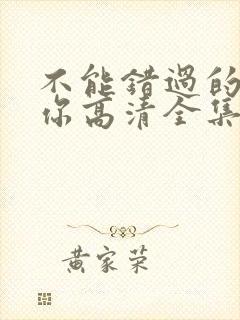 不能错过的
你高清全集
黄家荣